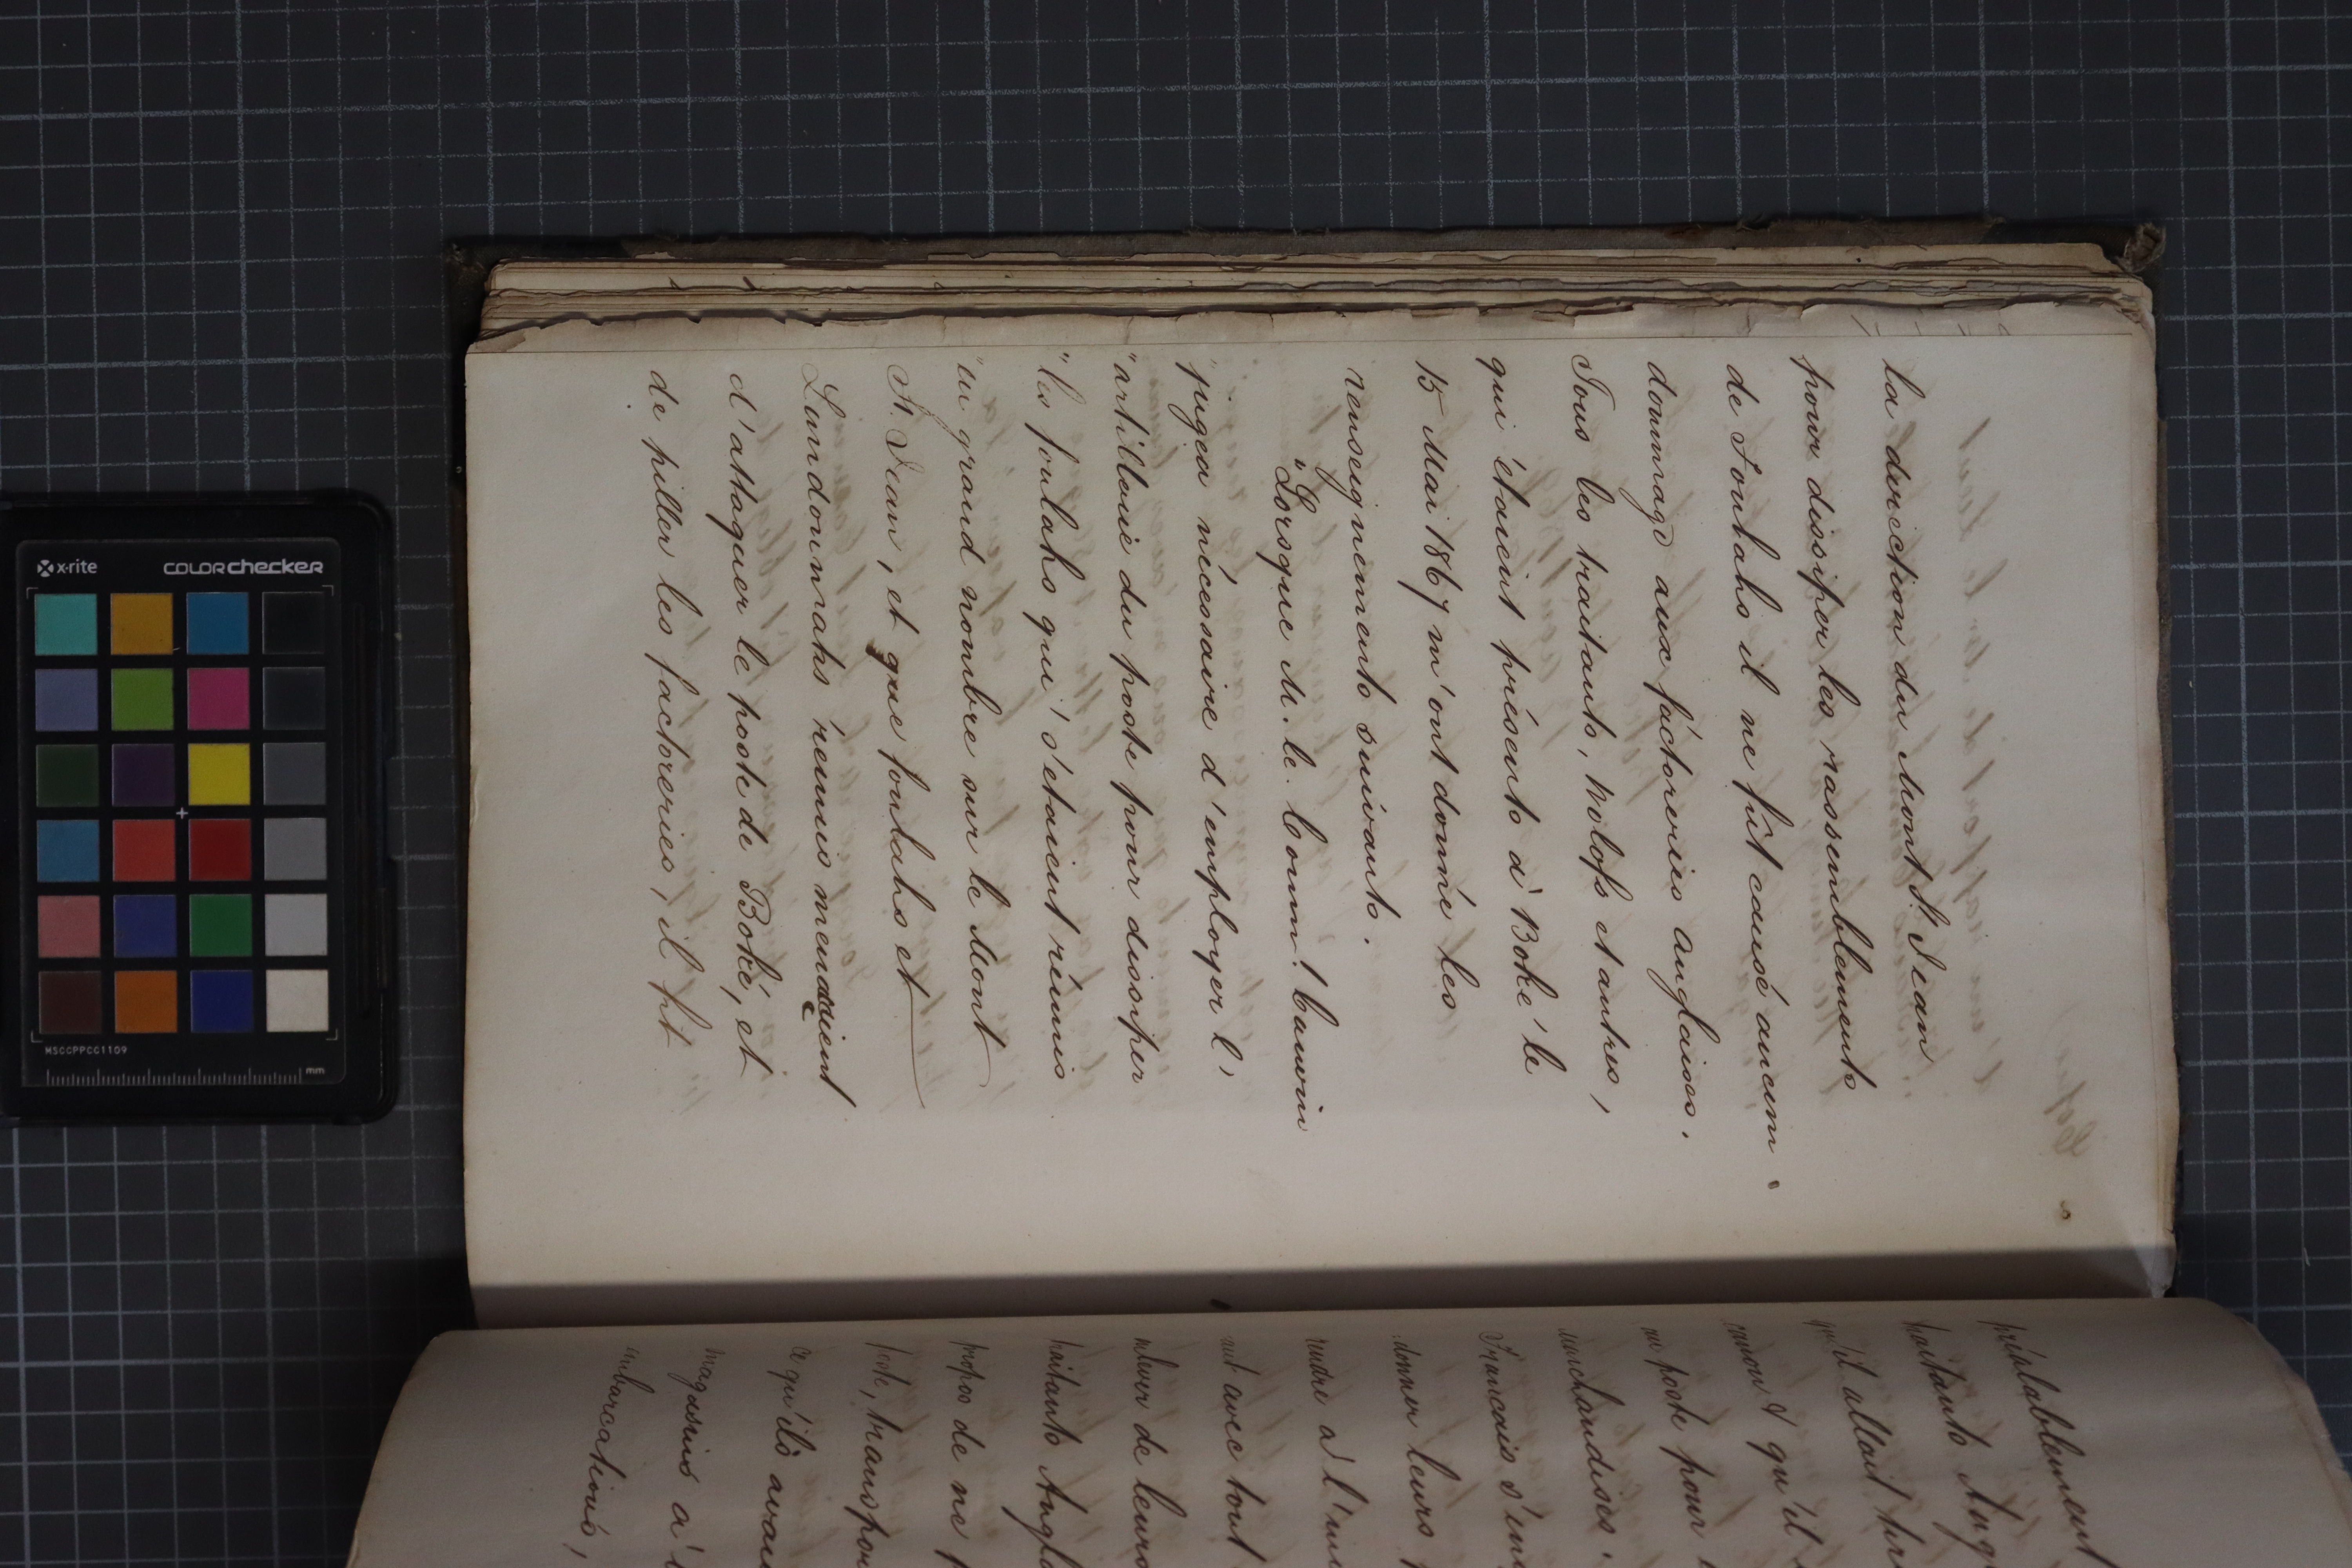 la direction du Mont St. Jean
pour dissiper les rassemblements
de Foulahs il ne fût causé aucun
dommage aux factoreries anglaises.
Tous les traitants, Wolofs et autres,
qui étaient présents à Boké le
15 Mai 1867 m'ont donné les
renseignements suivants.
"Lorsque M. le Comm! Cauvin
"jugea nécessaire d'employer l'
"artillerie du poste pour dissiper
"les foulahs qui s'étaient réunis
"en grand nombre sur le Mont
St. Jean, et que foulahs et
Landoumahs réunis menaçaient
d'attaquer le poste de Boké, et
de piller les factoreries, il fit
préalablement
traitants Ang
qu'il allait tire
canon & qu'il
au poste pour
marchandises.
Francais s'em
donner leurs
rendre à l'in
mit avec tout
enlever de leurs
traitants Angla
propos de ne
poste, transpor
ce qu'ils avai
magasins à
embarcations,
x-rite
colorchecker
MSCCPPCC1109
mm